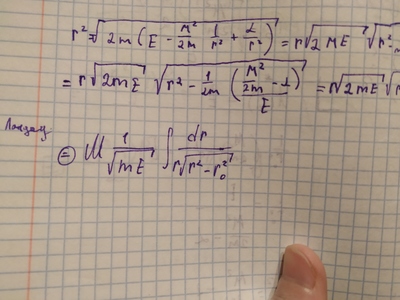 r² √(2m(E − M²/2m 1/r² + α/r²)) = r√(2mE) √(r²
= r√(2mE) √(r² − 1/2m (M²/2m − α)/E) = r√(2mE) √(
⊜ M 1/√(mE) ∫ dr/(r√(r² − r₀²))